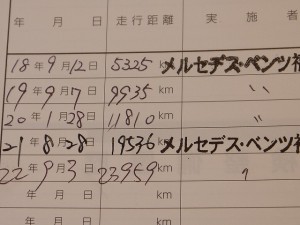 年 月 日 走行距離 実施者
18年9月12日 5325km メルセデス・ベンツ
19年9月7日 9935km 〃
20年1月28日 11810km 〃
21年8月28日 19536km メルセデス・ベンツ
22年9月3日 23959km 〃
年 月 日 km
年 月 日 km